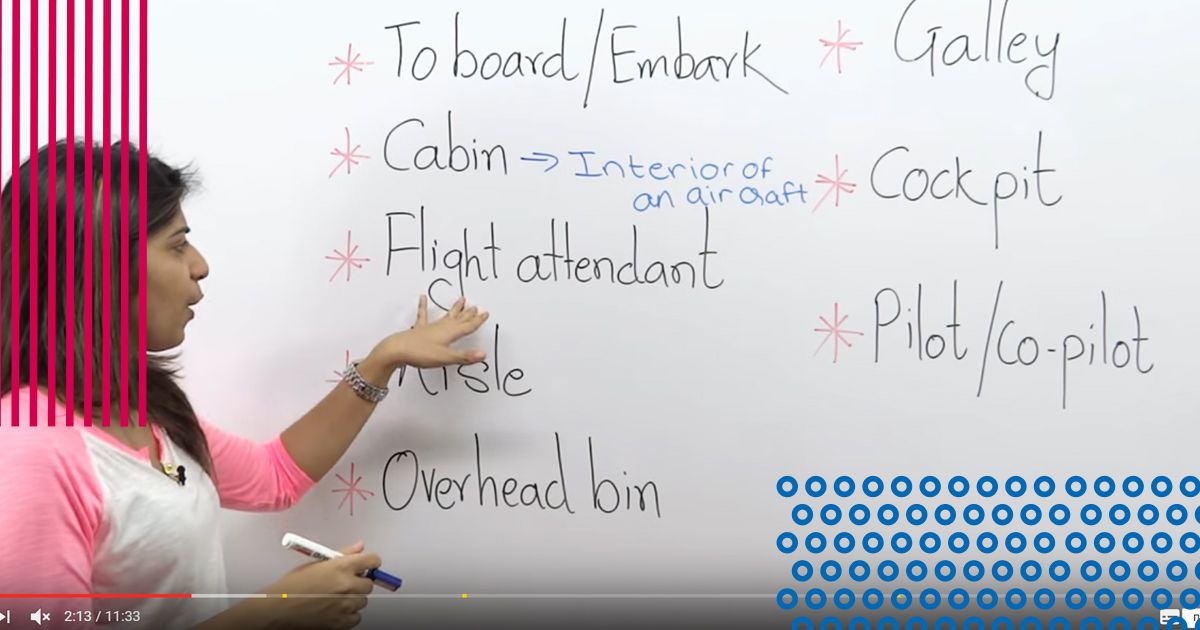 To board / Embark
Cabin → Interior of
an aircraft
Flight attendant
Aisle
Overhead bin
Galley
Cockpit
Pilot / Co-pilot
2:13 / 11:33